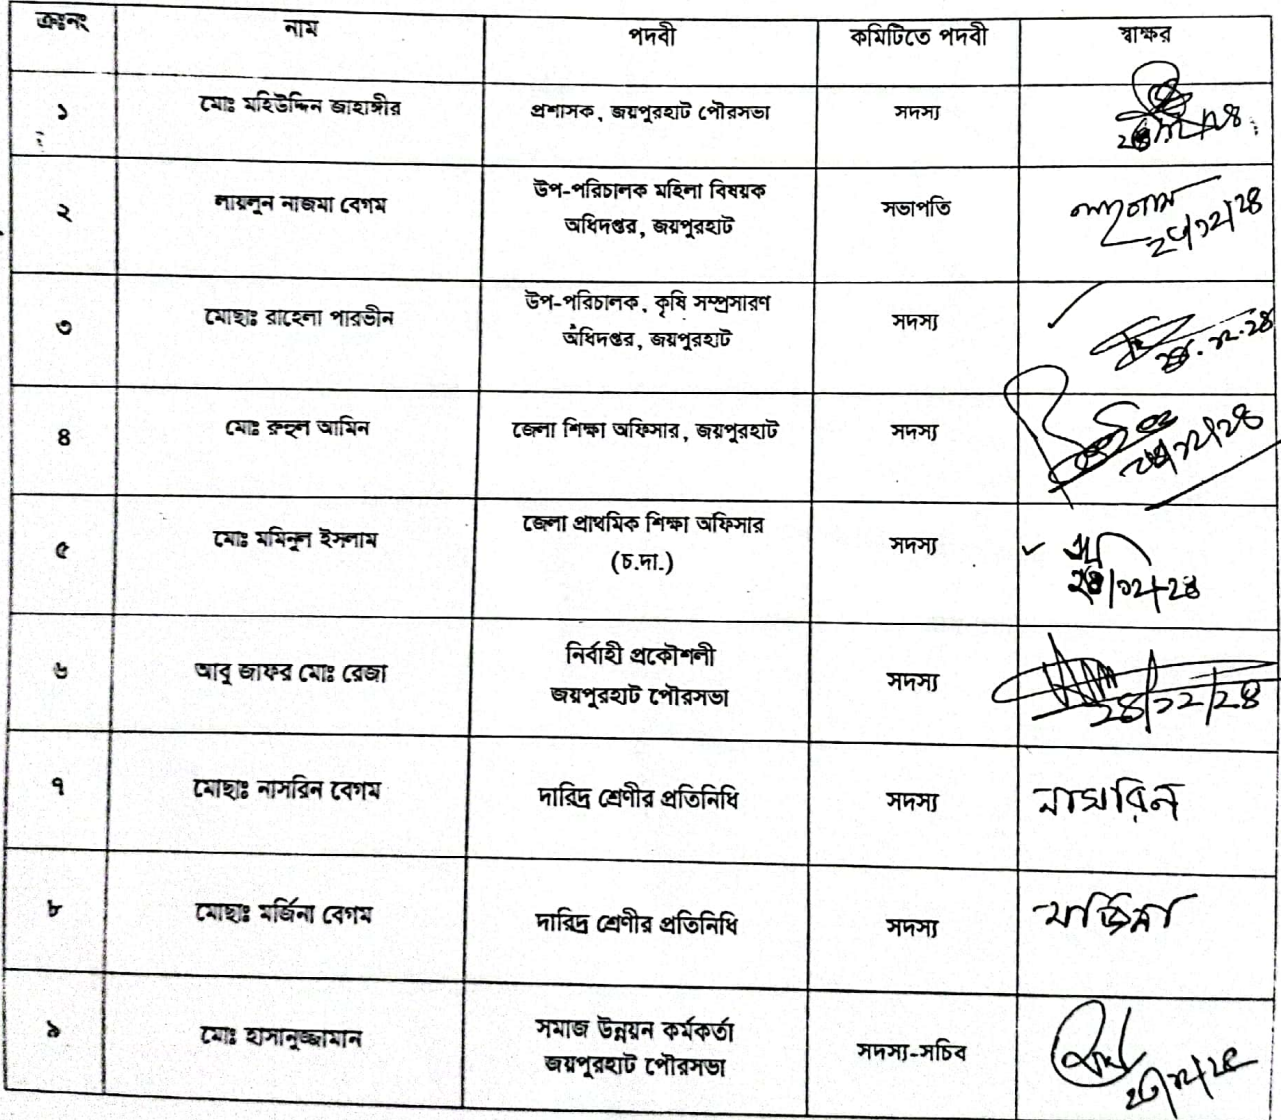 ক্রঃনং নাম পদবী কমিটিতে পদবী স্বাক্ষর
১ মোঃ মহিউদ্দিন জাহাঙ্গীর প্রশাসক, জয়পুরহাট পৌরসভা সদস্য
২ লায়লুন নাজমা বেগম উপ-পরিচালক মহিলা বিষয়ক
অধিদপ্তর, জয়পুরহাট সভাপতি
৩ মোছাঃ রাহেলা পারভীন উপ-পরিচালক, কৃষি সম্প্রসারণ
অধিদপ্তর, জয়পুরহাট সদস্য
৪ মোঃ রুহুল আমিন জেলা শিক্ষা অফিসার, জয়পুরহাট সদস্য
৫ মোঃ মমিনুল ইসলাম জেলা প্রাথমিক শিক্ষা অফিসার
(চ.দা.) সদস্য
৬ আবু জাফর মোঃ রেজা নির্বাহী প্রকৌশলী
জয়পুরহাট পৌরসভা সদস্য
২৪/১২/২৪
৭ মোছাঃ নাসরিন বেগম দারিদ্র শ্রেণীর প্রতিনিধি সদস্য নাসরিন
৮ মোছাঃ মর্জিনা বেগম দারিদ্র শ্রেণীর প্রতিনিধি সদস্য মর্জিনা
৯ মোঃ হাসানুজ্জামান সমাজ উন্নয়ন কর্মকর্তা
জয়পুরহাট পৌরসভা সদস্য-সচিব